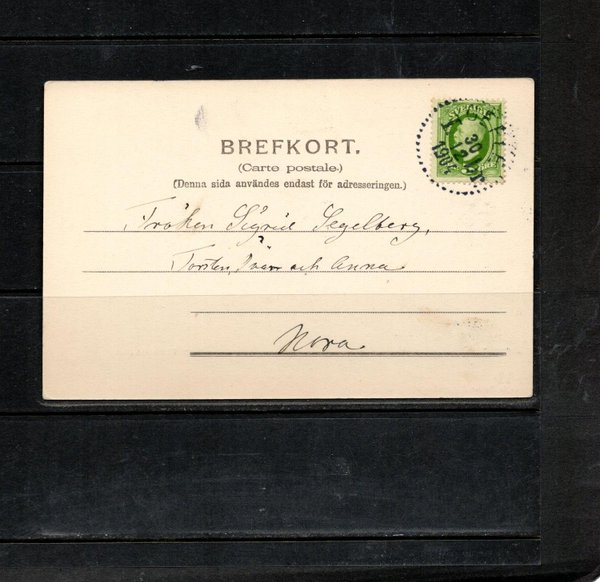 BREFKORT.
(Carte postale.)
(Denna sida användes endast för adresseringen.)
SVERIGE
30 12
Fröken Sigrid Segelberg,
Torsten, Ivar och Anna
Nora